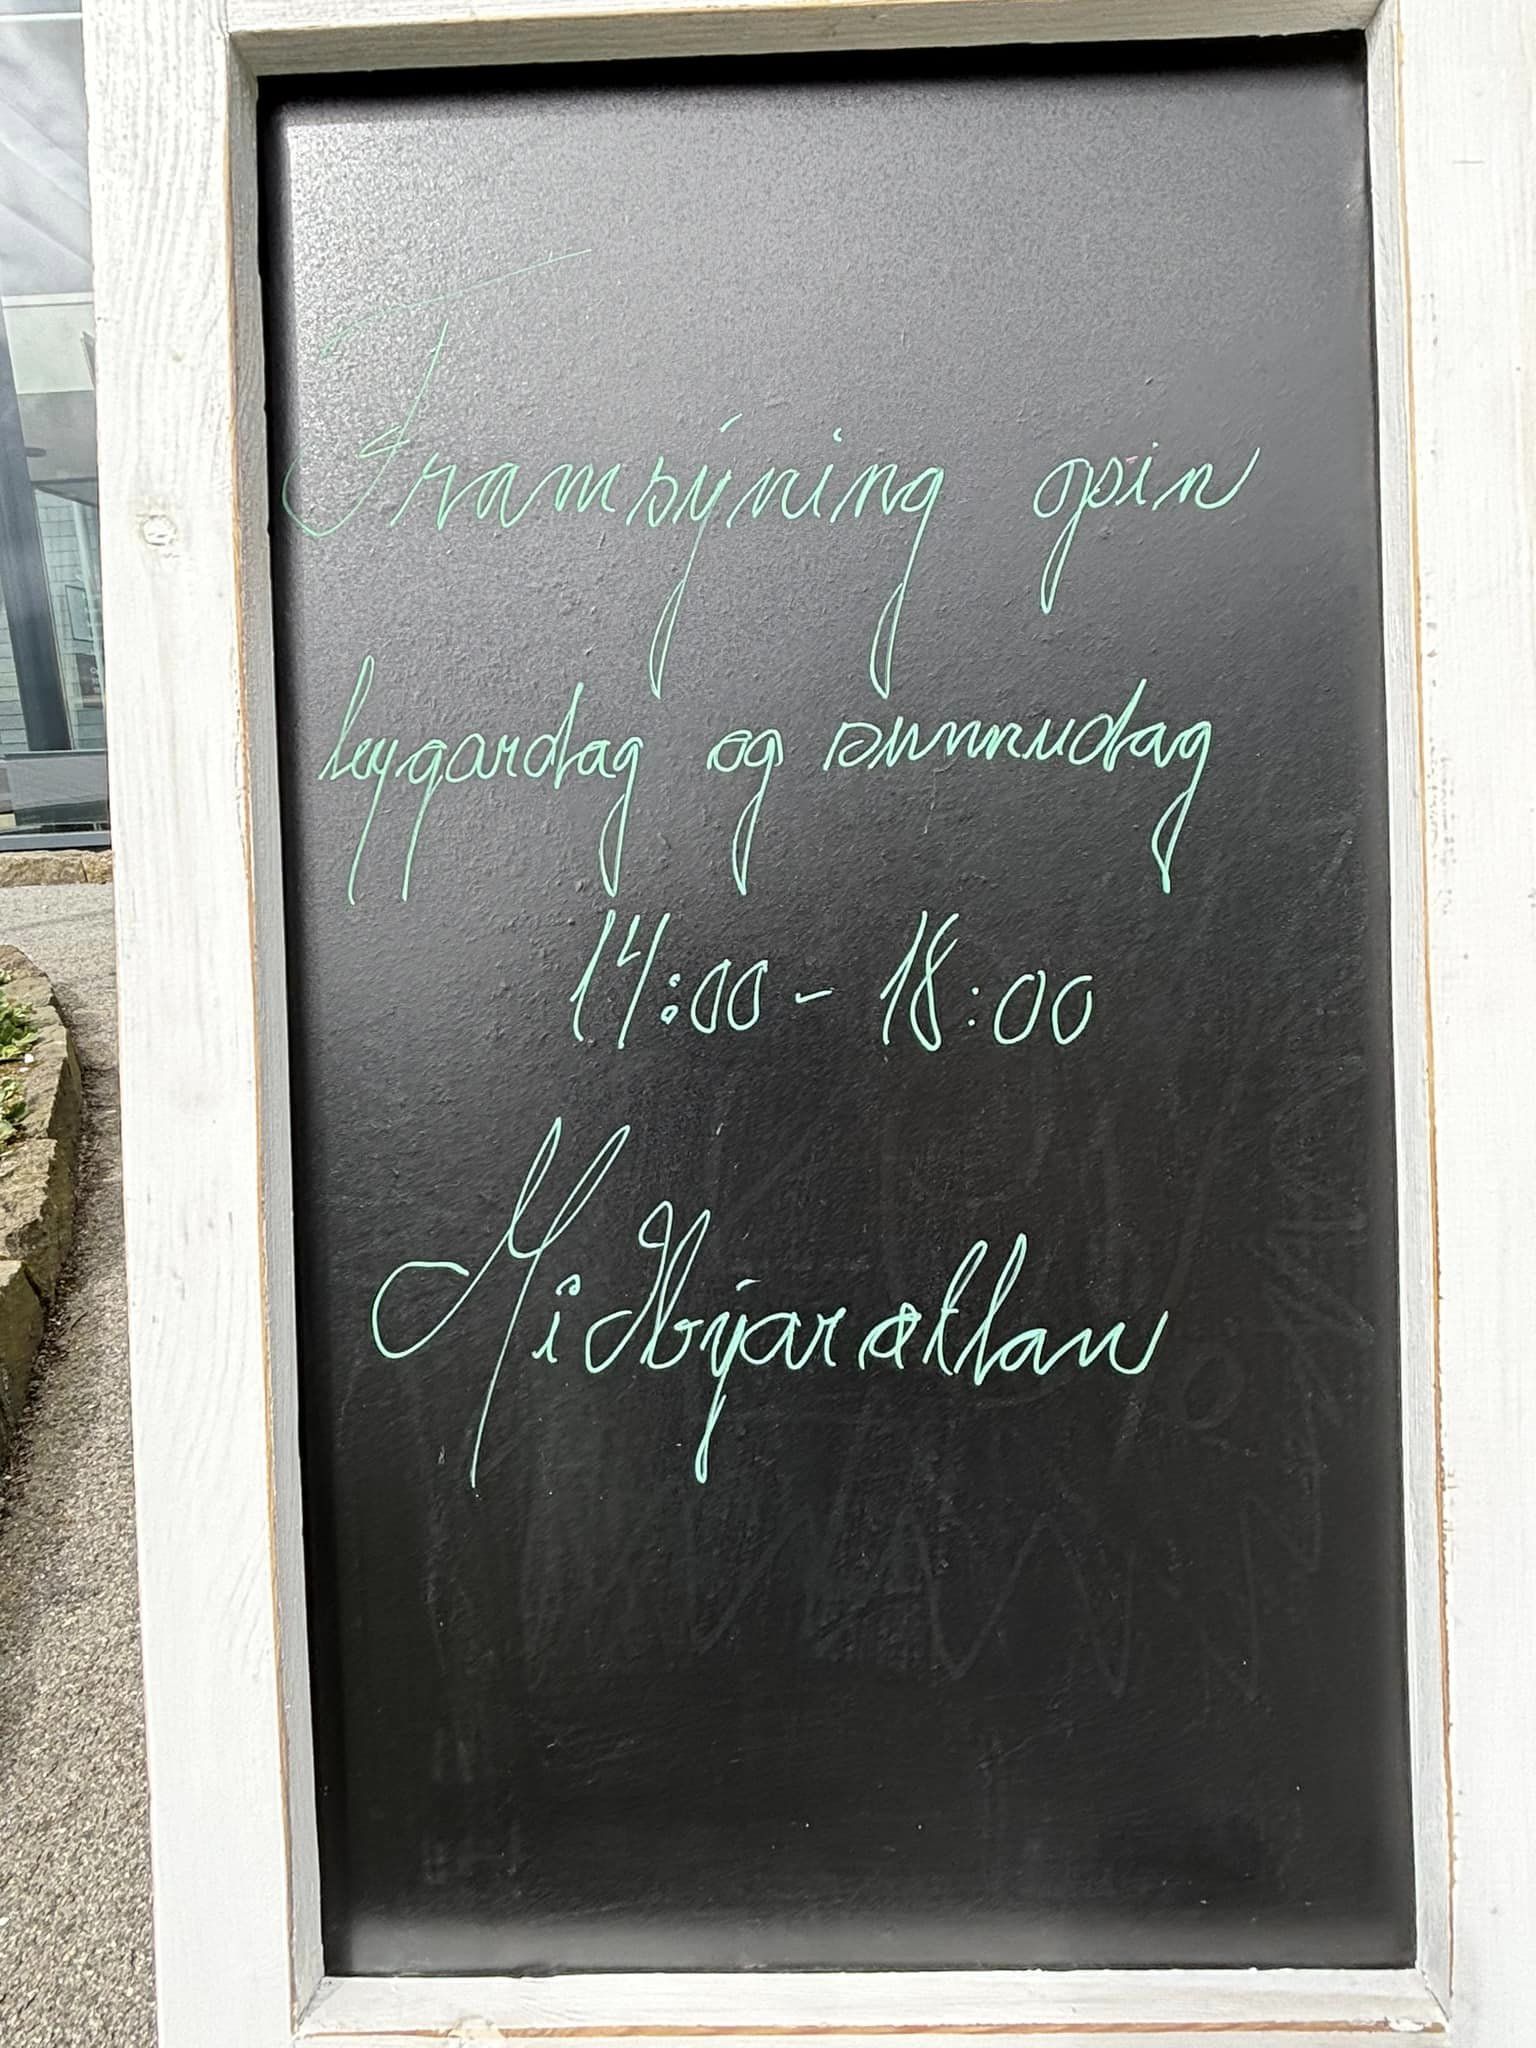 Framsýning opin
leygardag og sunnudag
14:00 - 18:00
Miðbýarætlan